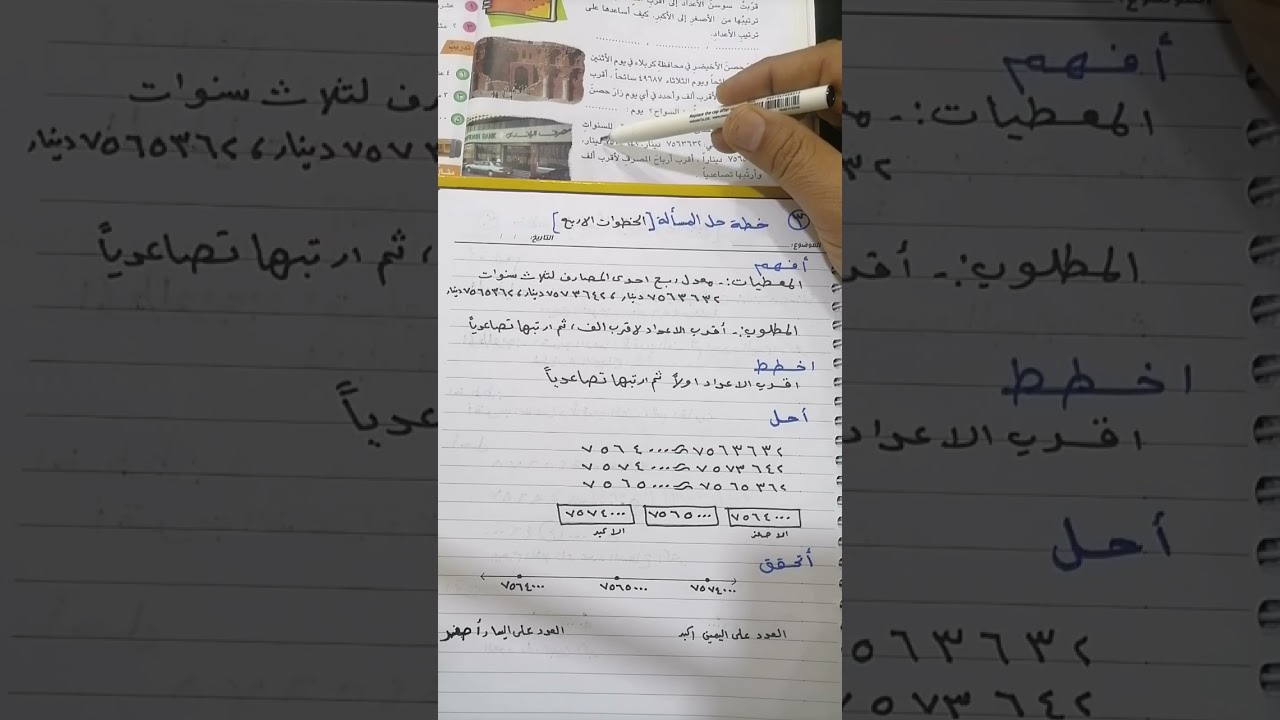 قربت سوسن الأعداد إلى أقرب
ترتيبها من الأصغر إلى الأكبر. كيف أساعدها على
ترتيب الأعداد.
حصن الأخيضر في محافظة كربلاء في يوم الأثنين
ويوم الثلاثاء ٤٩٦٨٧ سائحاً، أقرب
لأقرب ألف وأحدد في أي يوم زار حصن
السواح؟ يوم:
للسنوات
٧٥٦٣٦٣٢ دينار،
ديناراً، أقرب أرباح المصرف لأقرب ألف
وأرتبها تصاعدياً.
٣ خطة حل المسألة [الخطوات الاربع]
الموضوع: التاريخ: / /
أفهم
المعطيات:- معدل ربح احدى المصارف لثلاث سنوات
٧٥٦٣٦٣٢ دينار، ٧٥٧٣٦٤٢ دينار، ٧٥٦٥٣٦٢ دينار
المطلوب:- أقرب الاعداد لاقرب الف، ثم ارتبها تصاعدياً
اخطط
اقرب الاعداد اولاً ثم ارتبها تصاعدياً
أحل
٧٥٦٣٦٣٢ ≈ ٧٥٦٤٠٠٠
٧٥٧٣٦٤٢ ≈ ٧٥٧٤٠٠٠
٧٥٦٥٣٦٢ ≈ ٧٥٦٥٠٠٠
٧٥٦٤٠٠٠ ٧٥٦٥٠٠٠ ٧٥٧٤٠٠٠
الاصغر الاكبر
أتحقق
٧٥٧٤٠٠٠ ٧٥٦٥٠٠٠ ٧٥٦٤٠٠٠
العدد على اليمين اكبر العدد على اليسار أصغر